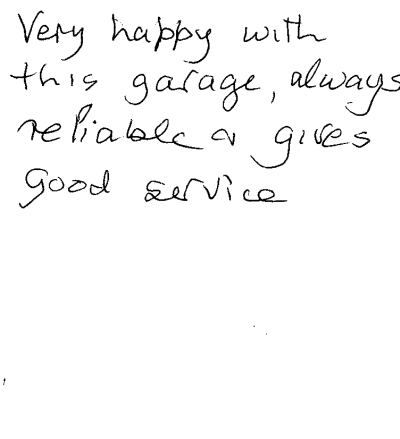 Very happy with
this garage, always
reliable & gives
good service